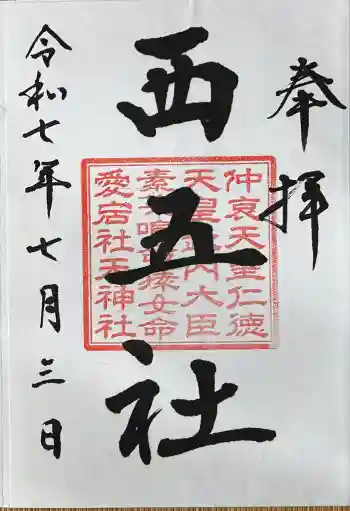 奉拝
西五社
仲哀天皇仁徳
天皇 内大臣
素 女命
愛宕社天神社
令和七年七月三日